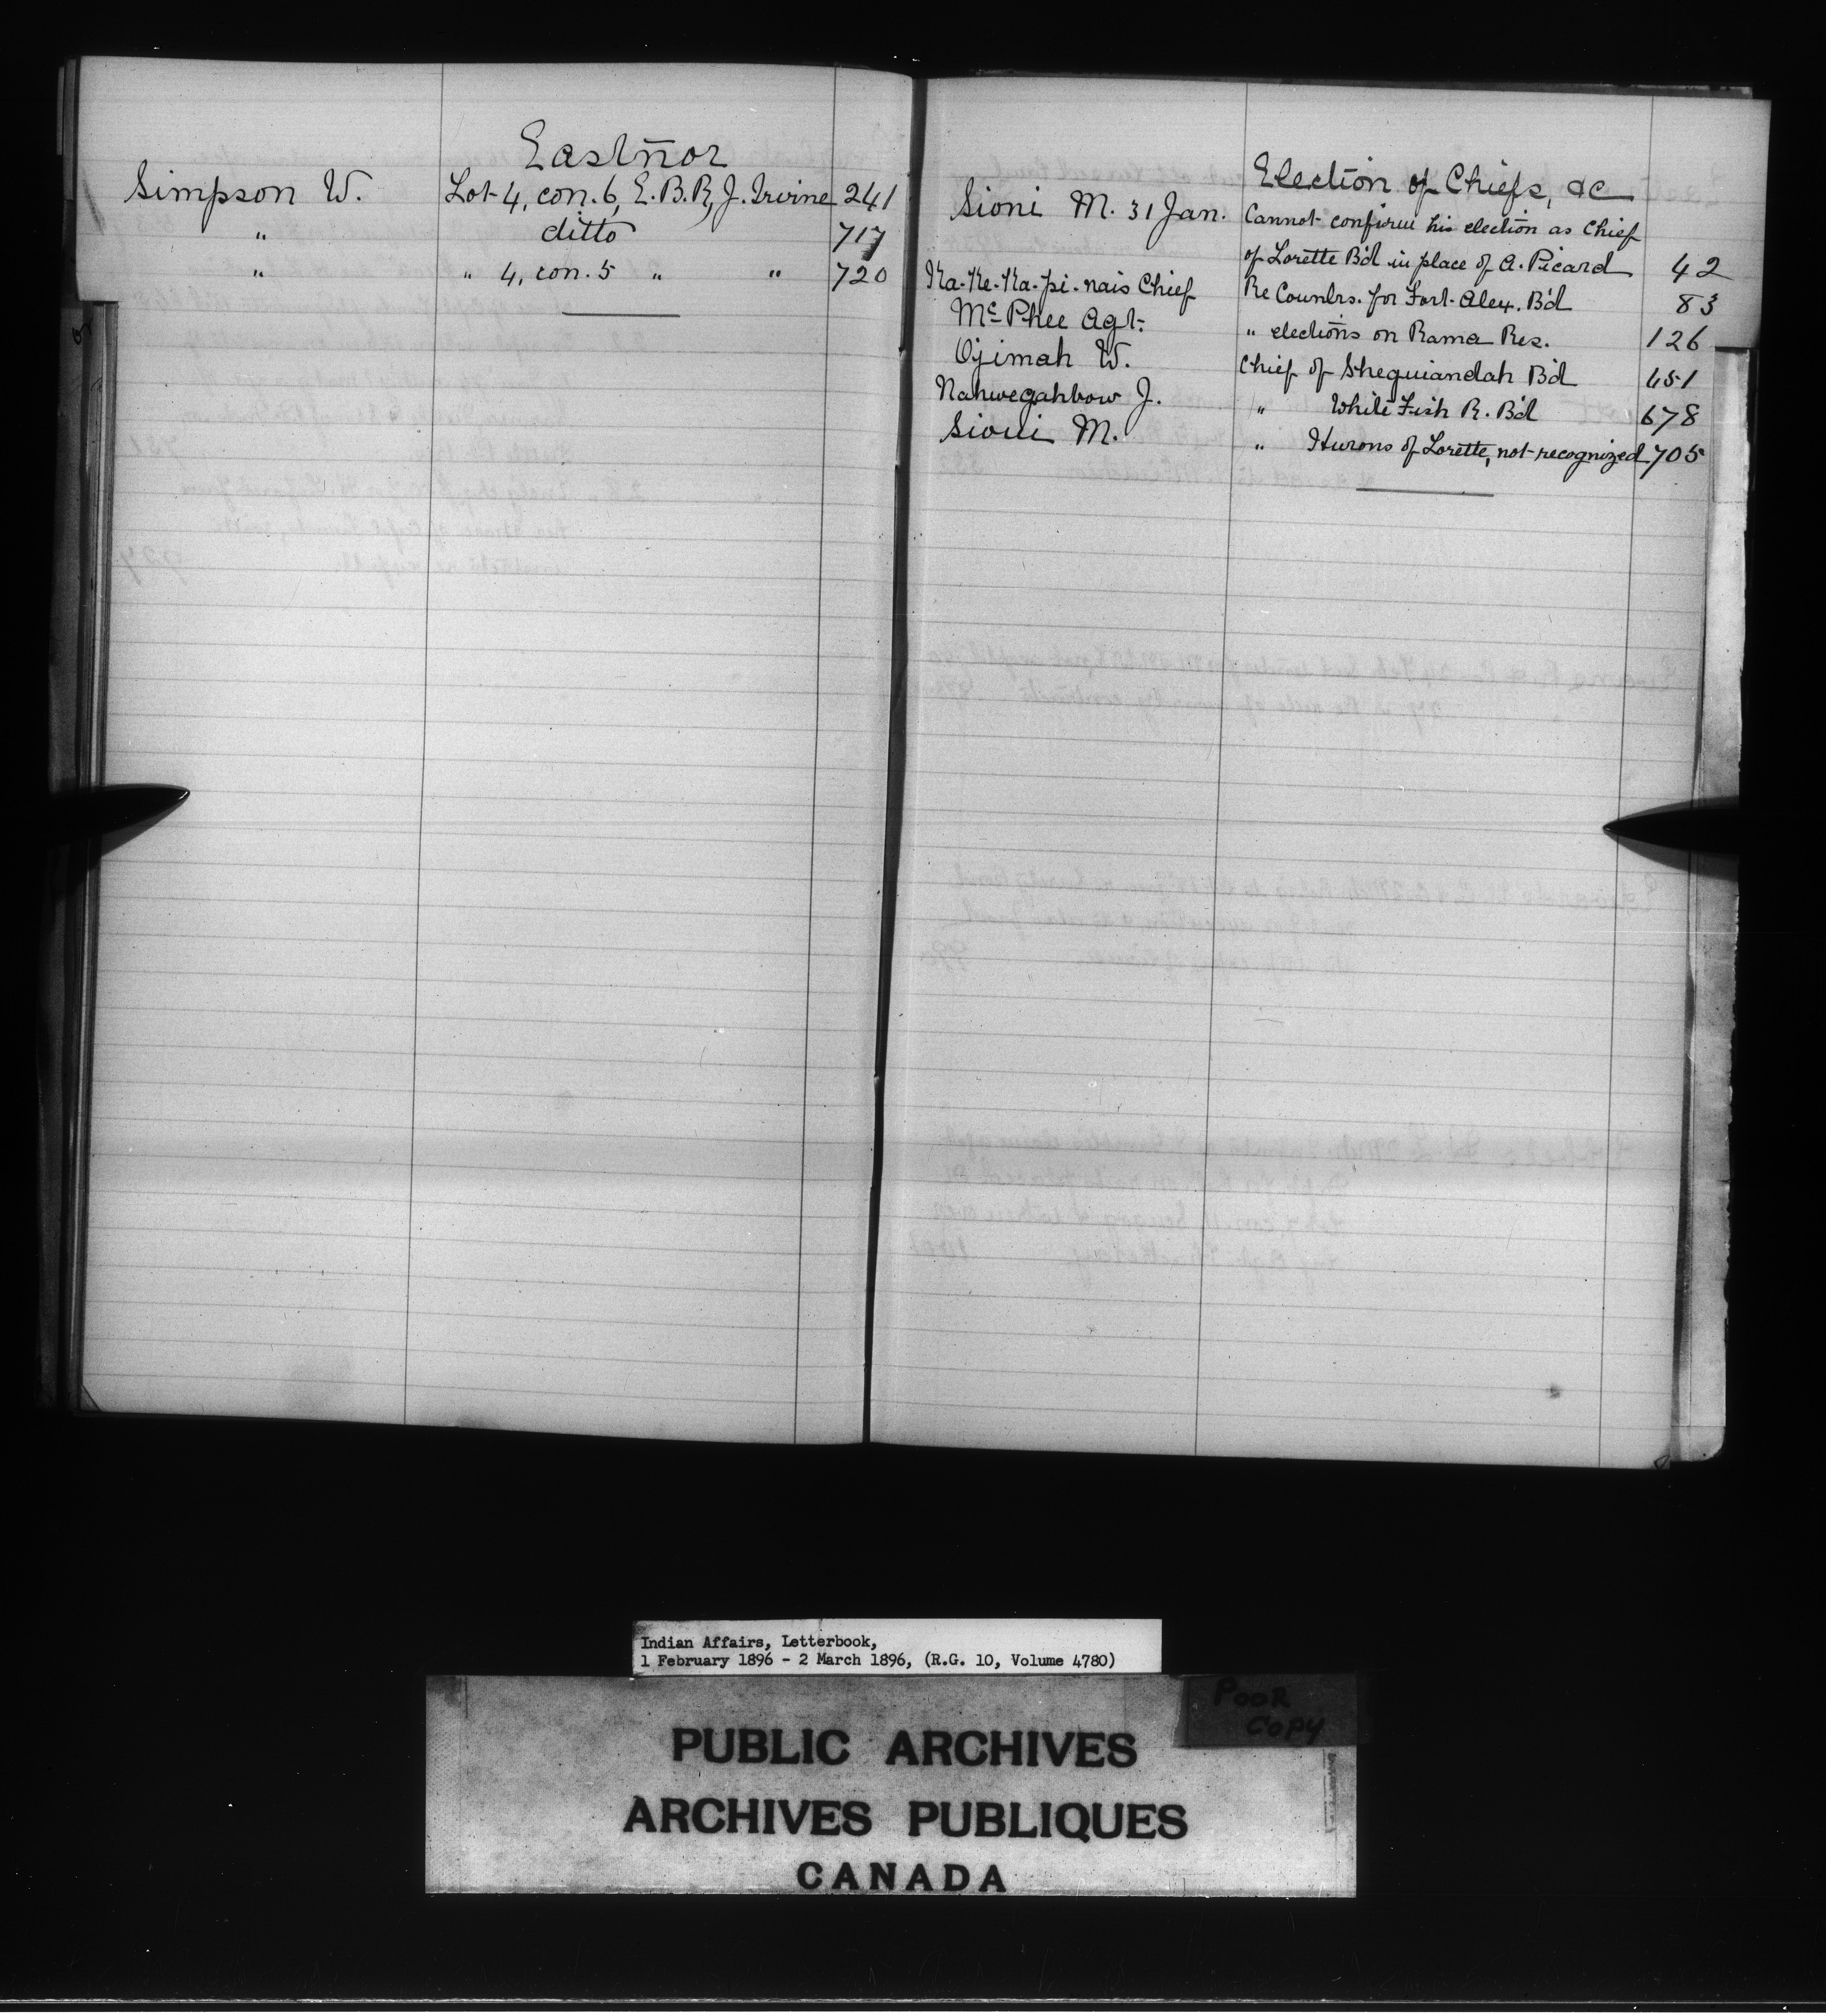 Eastnor
Simpson W. Lot 4, con. 6, E.B.R, J. Irvine 241
" ditto 717
" " 4, con. 5 " " 720
Election of Chiefs, &c
Sioni M. 31 Jan. Cannot confirm his election as Chief
of Lorette B'd in place of A. Picard 42
Ka-Ke-Ka-pi-nais Chief Re Counlrs. for Fort Alex. B'd 83
McPhee Agt. " elections on Rama Res. 126
Ojimah W. Chief of Sheguiandah B'd 451
Nahwegahbow J. " White Fish R. B'd 678
Sioui M. " Hurons of Lorette, not recognized 705
Indian Affairs, Letterbook,
1 February 1896 - 2 March 1896, (R.G. 10, Volume 4780)
POOR
COPY
PUBLIC ARCHIVES
ARCHIVES PUBLIQUES
CANADA